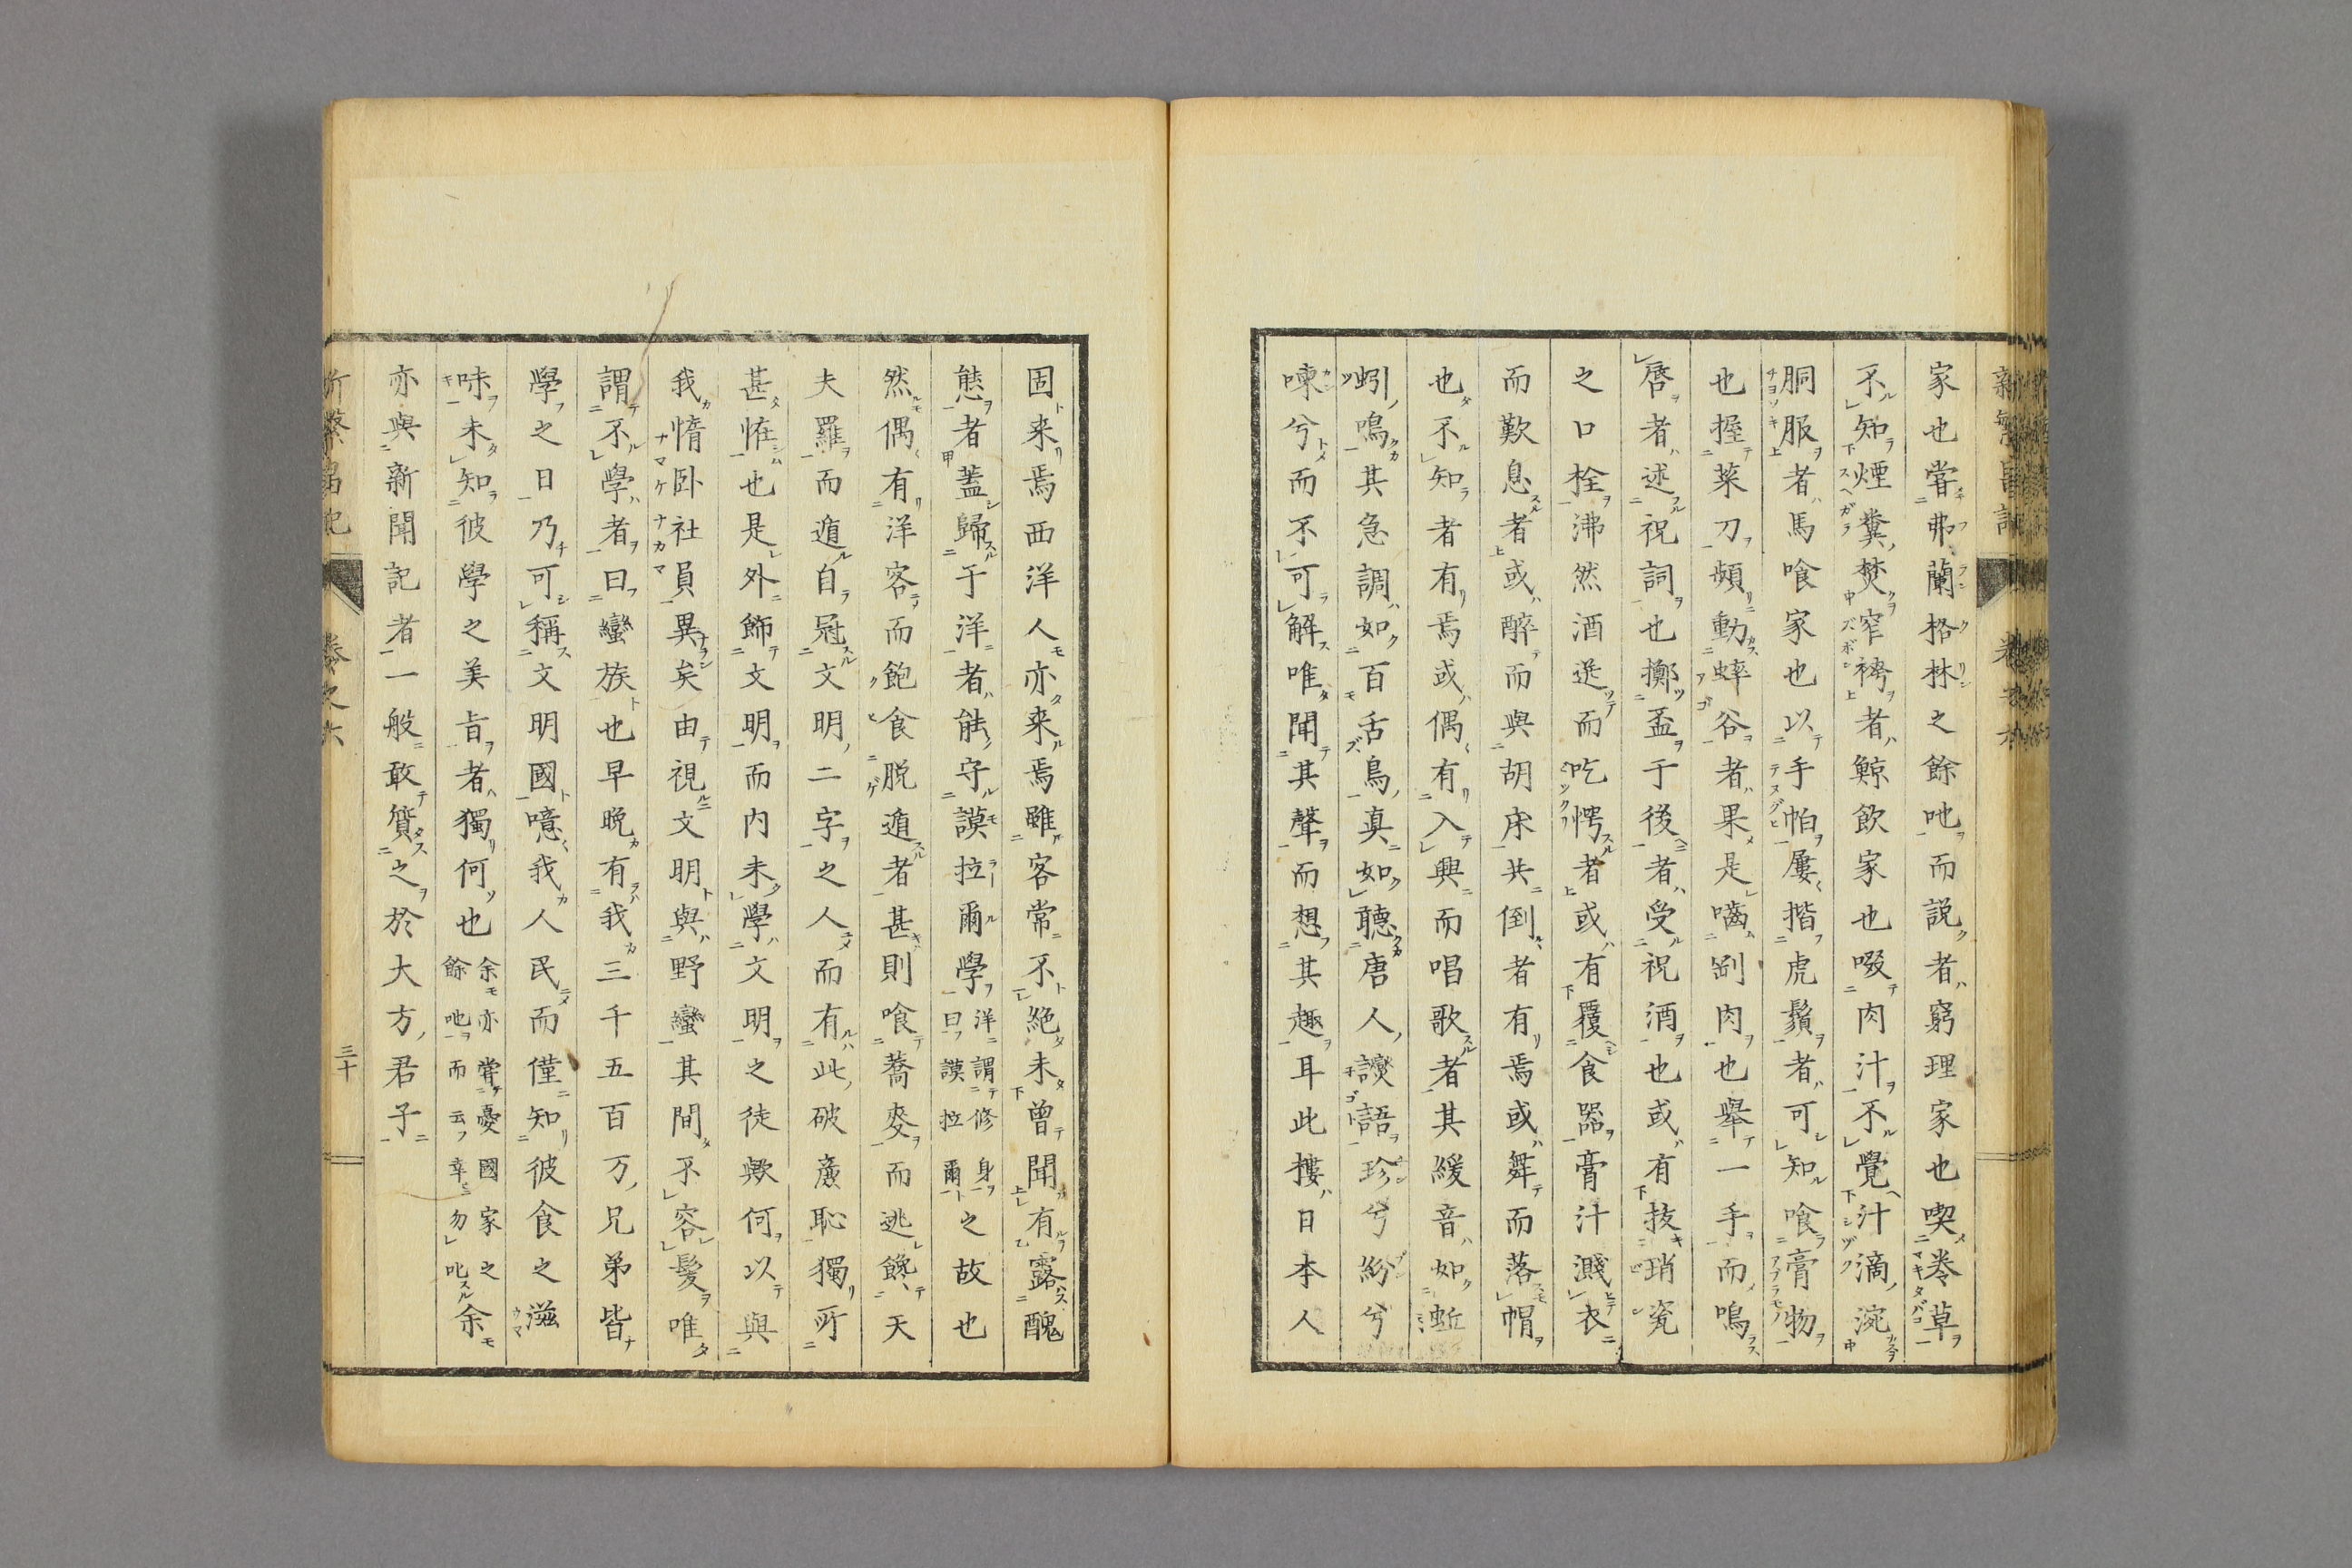 家也嘗弗蘭格林之餘吔而説者窮理家也喫巻草
不知煙糞焚窄袴者鯨飲家也啜肉汁不覺汁滴涴
胴服者馬喰家也以手帕屢揩虎鬚者可知喰膏物
也握菜刀頻動蜶谷者果是嚙副肉也舉一手而鳴
唇者述祝詞也擲盃于後者受祝酒也或有技琑瓷
之口栓沸然酒迸而吃愕者或有覆食器膏汁濺衣
而歎息者或醉而與胡床共倒者有焉或舞而落帽
也不知者有焉或偶有入興而唱歌者其緩音如蚯
蚓鳴其急調如百舌鳥真如聽唐人讛語珍兮紛兮
㖦兮而不可解唯聞其聲而想其趣耳此樓日本人
固来焉西洋人亦来焉雖客常不絶未曾聞有露醜
態者蓋歸于洋者能守謨拉爾學洋謂修身曰謨拉爾之故也
然偶有洋客而飽食脱遁者甚則喰蕎麥而逃饞天
夫羅而遁自冠文明二字之人而有此破廉恥獨所
甚恠也是外飾文明而内未學文明之徒歟何以與
我惰卧社員異矣由視文明與野蠻其間不容髪唯
謂不學者曰蠻族也早晩有我三千五百万兄弟皆
學之日乃可稱文明國噫我人民而僅知彼食之滋
味未知彼學之美旨者獨何也余亦嘗憂國家之餘吔而云幸勿叱余
亦與新聞記者一般敢質之於大方君子
三十